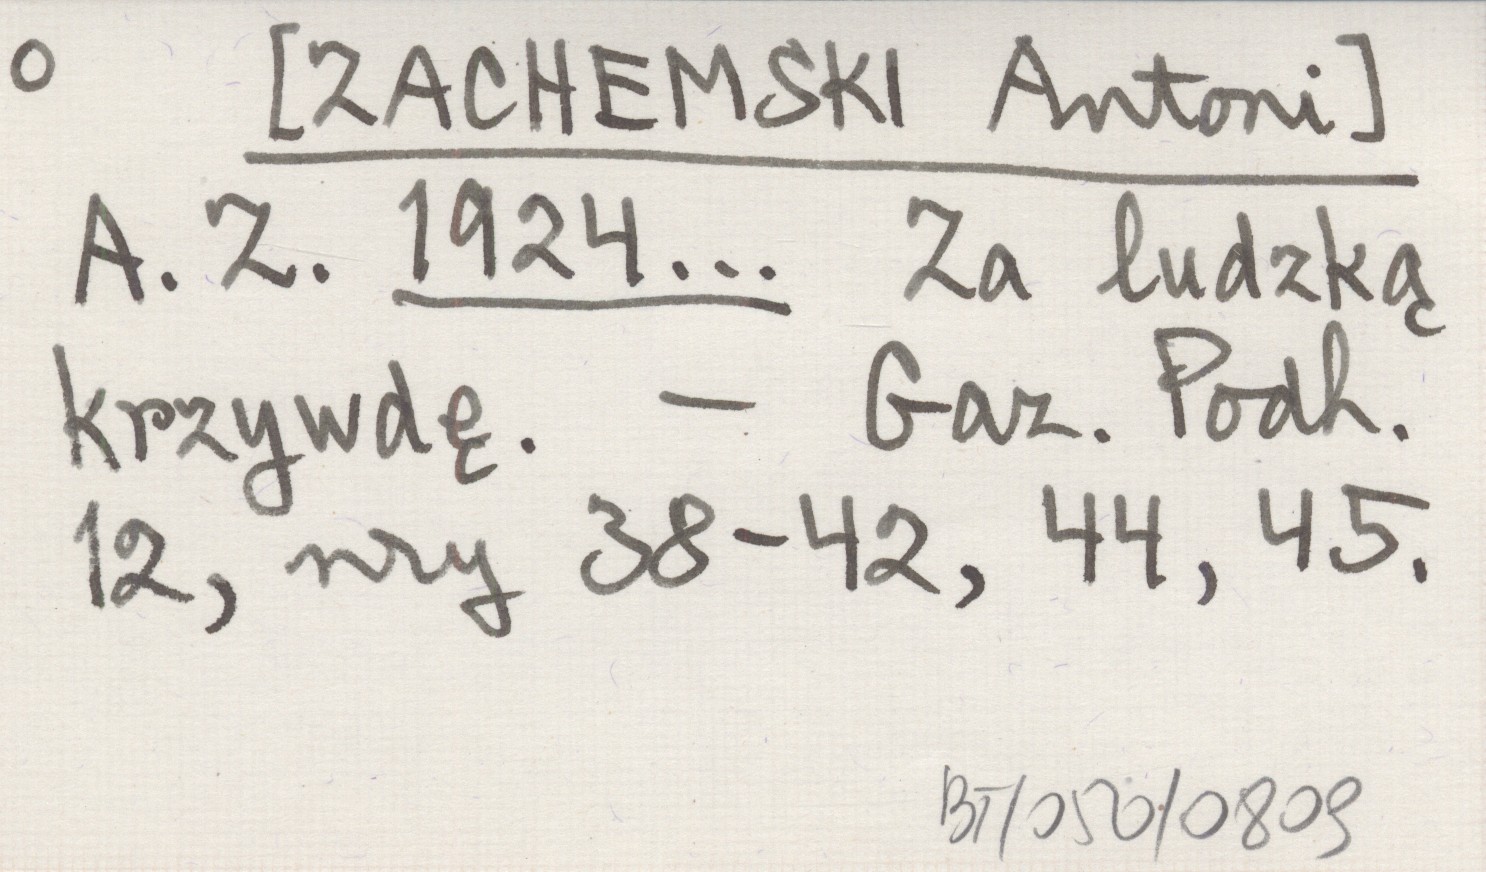 o [ZACHEMSKI Antoni]
A. Z. 1924... Za ludzką
krzywdę. — Gaz. Podh.
12, nry 38-42, 44, 45.
BT/050/0809